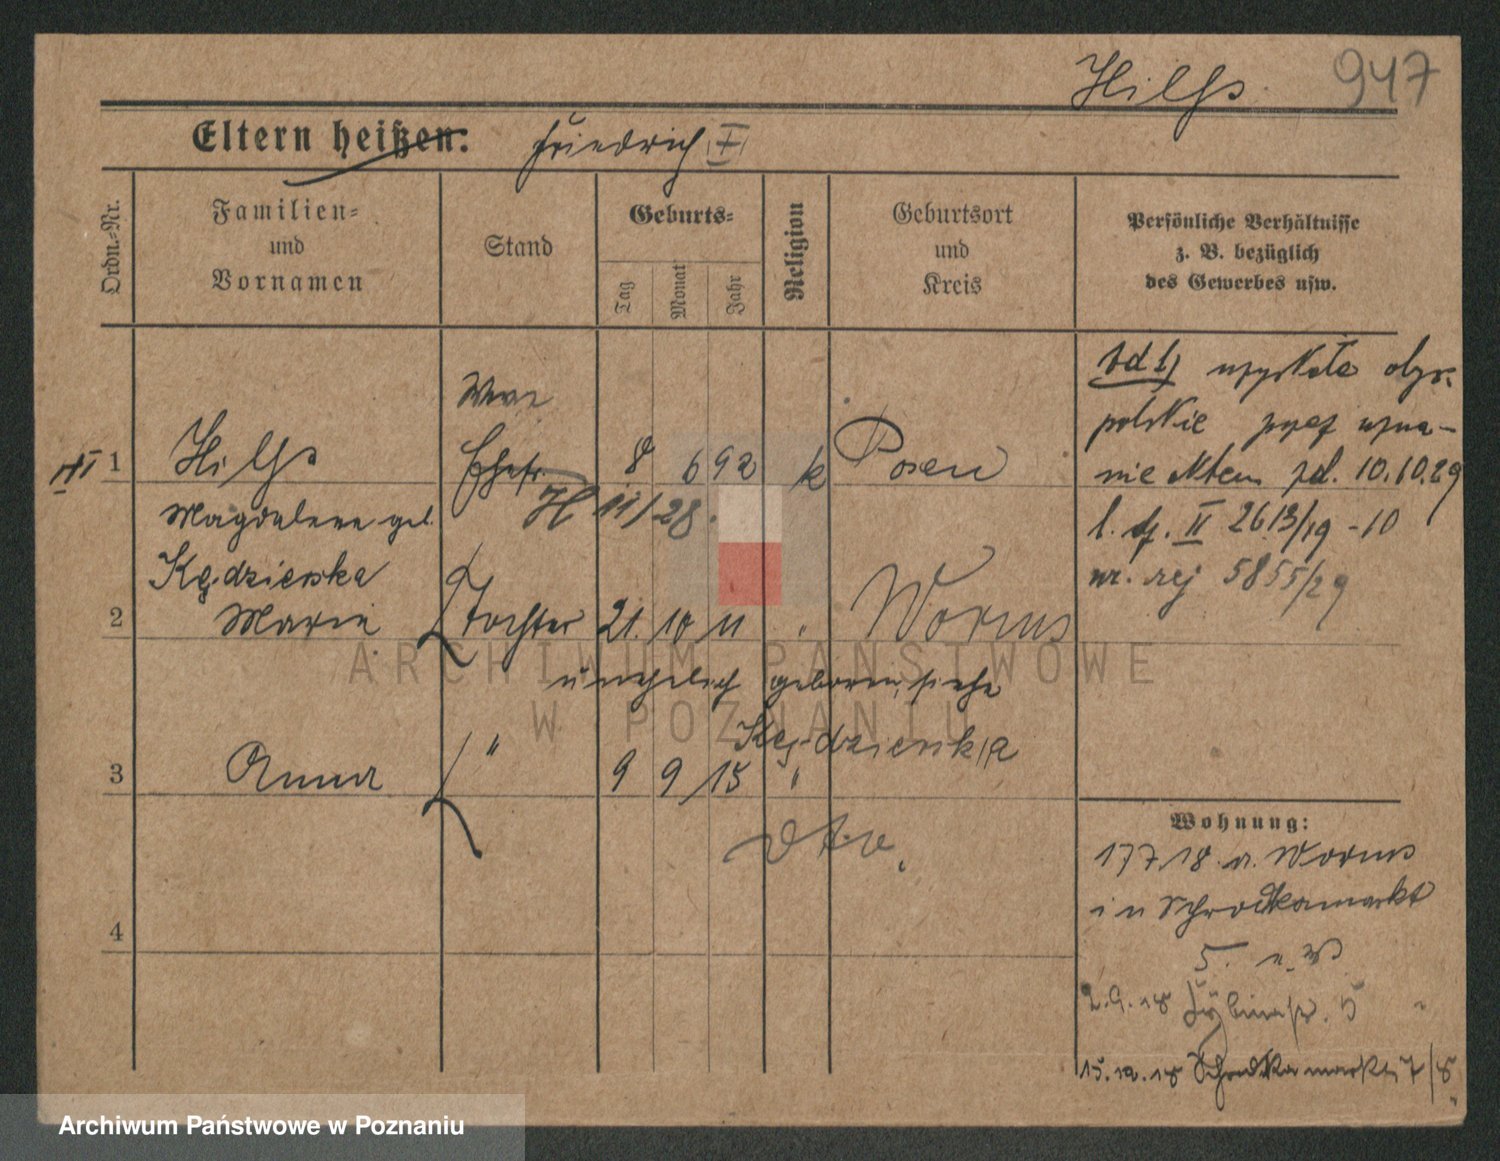 947
Hilss
Eltern heißen: Friedrich I
Ordn.-Nr.
Familien-
und
Vornamen
Stand
Geburts-
Tag
Monat
Jahr
Religion
Geburtsort
und
Kreis
Persönliche Verhältnisse
z. B. bezüglich
des Gewerbes usw.
Wwe
1 Hilss Ehefr. 8 6 92 k Posen
H 11/28.
Magdalena geb.
Kędzierska
2 Maria Tochter 21. 10 11 " Worms
unehelich geboren, siehe
Kędzierska
3 Anna " 9 9 15 "
dto.
4
ad 1) uzyskała obyw.
polskie przez uzna-
nie zd. 10.10.29
l. dz. II 2613/19-10
nr. rej 5855/29
Wohnung:
17 7 18 v. Worms
in Schrodkamarkt
5.
2.9.18 5
15.12.18 Schrodkamarkt 7/8
ARCHIWUM PAŃSTWOWE
W POZNANIU
Archiwum Państwowe w Poznaniu